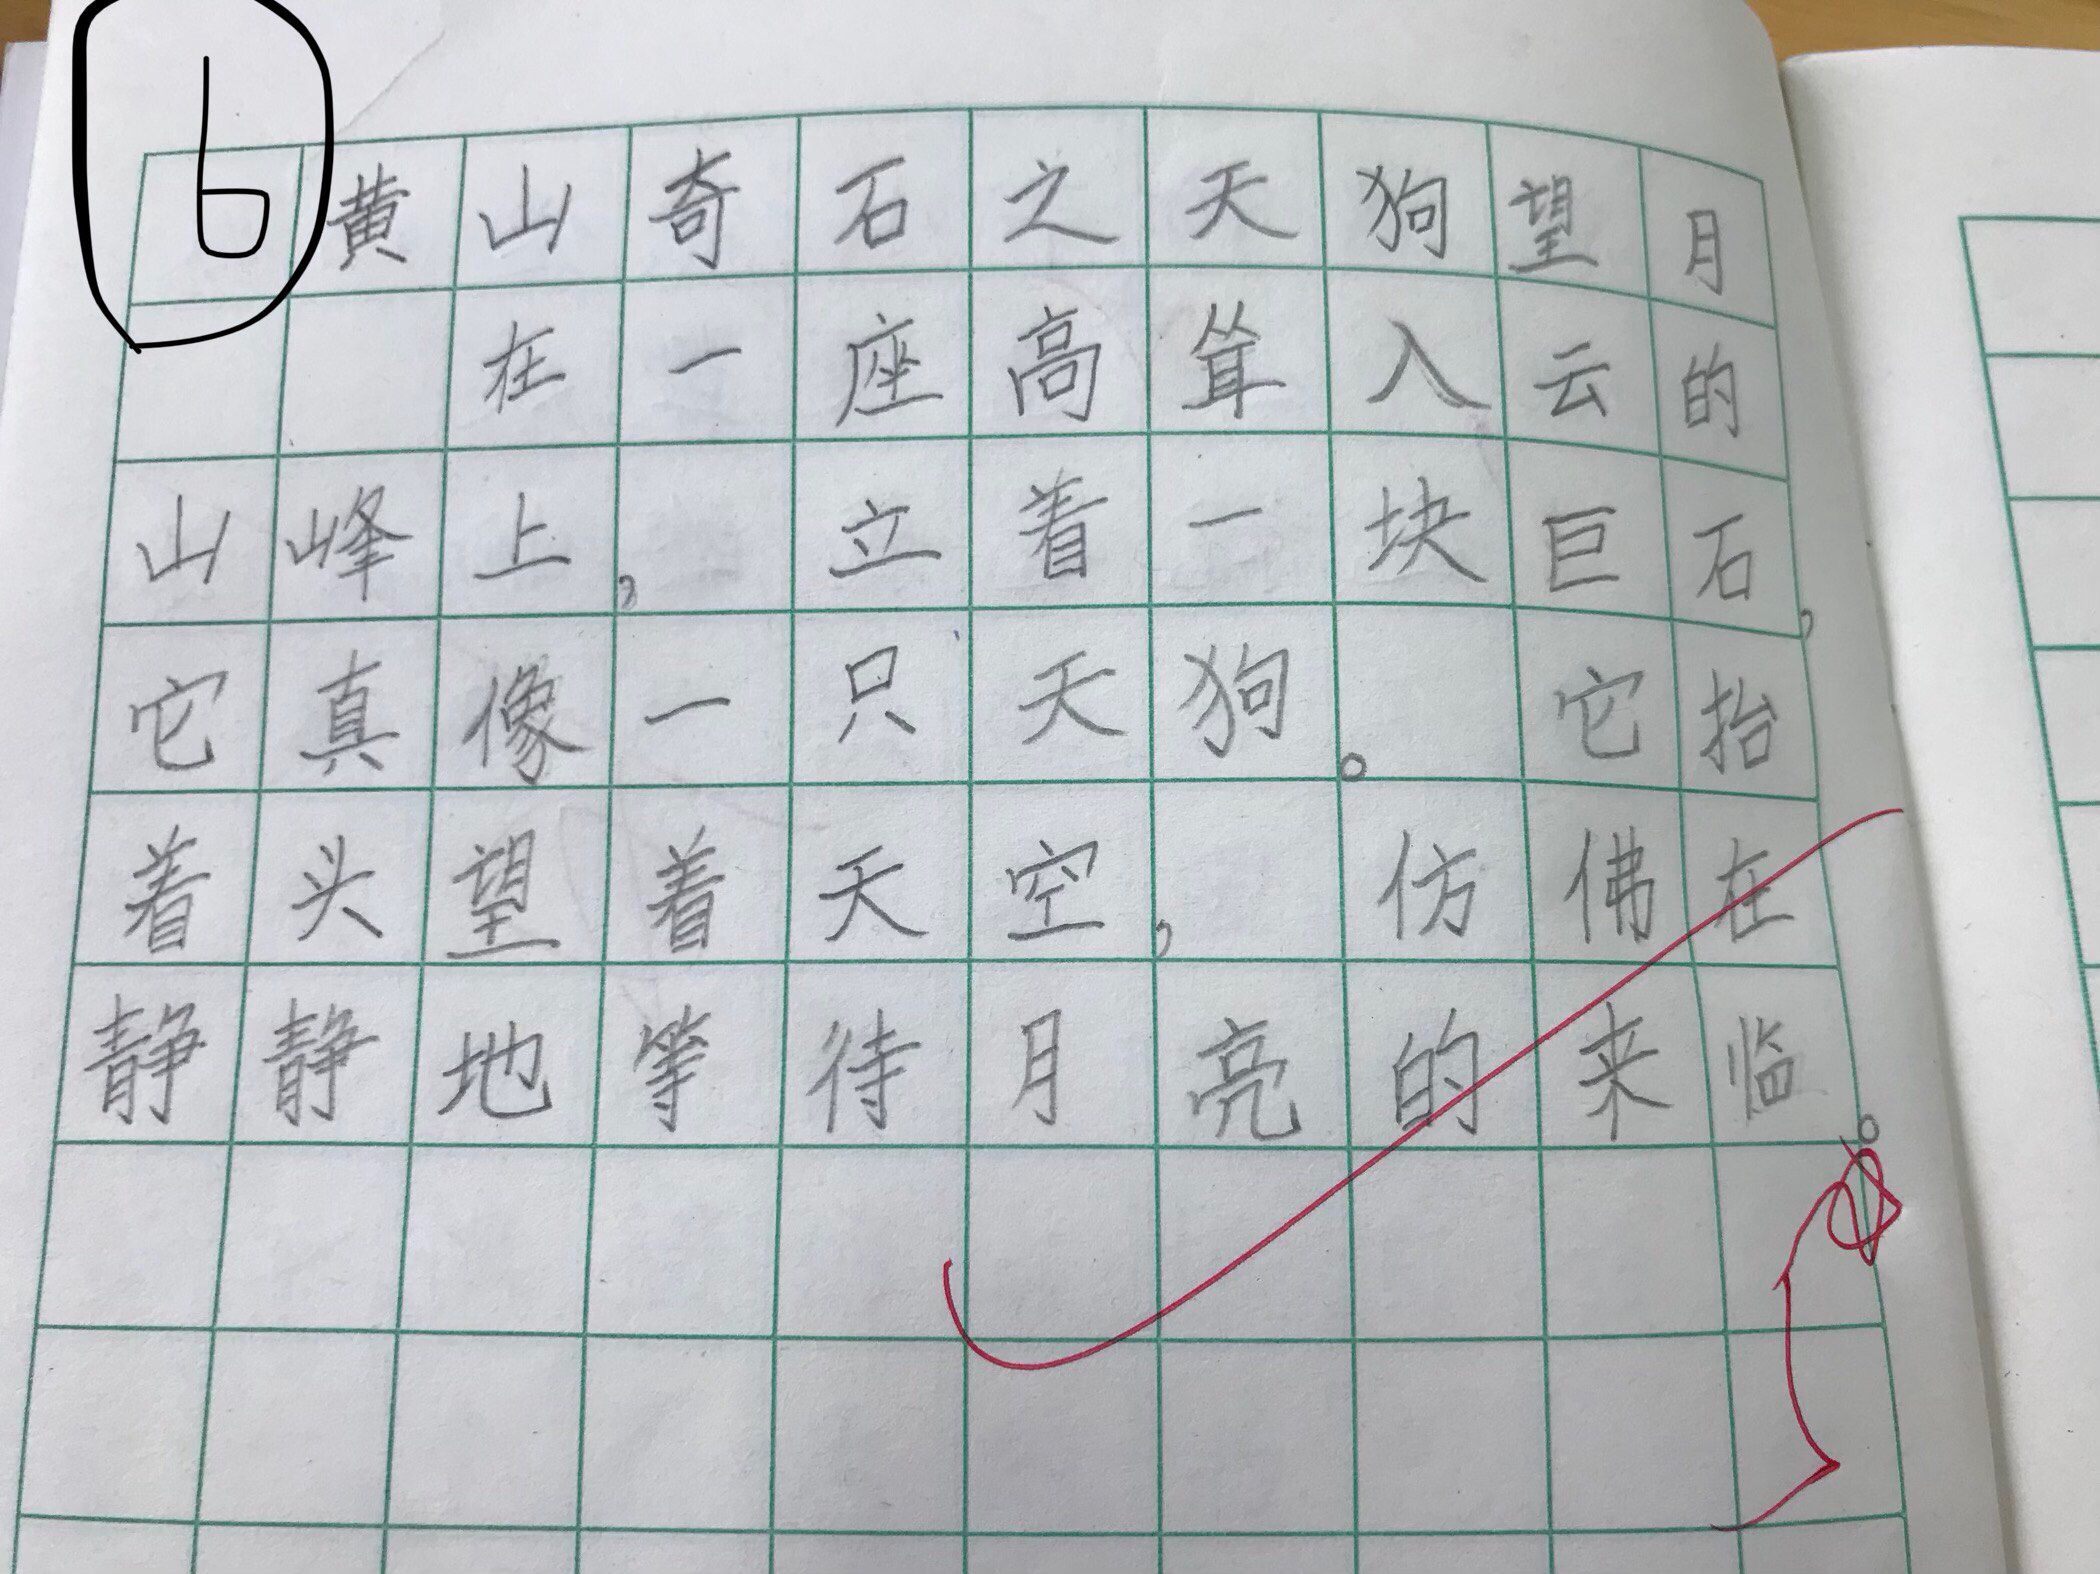 6
黄山奇石之天狗望月
在一座高耸入云的
山峰上，立着一块巨石，
它真像一只天狗。它抬
着头望着天空，仿佛在
静静地等待月亮的来临。